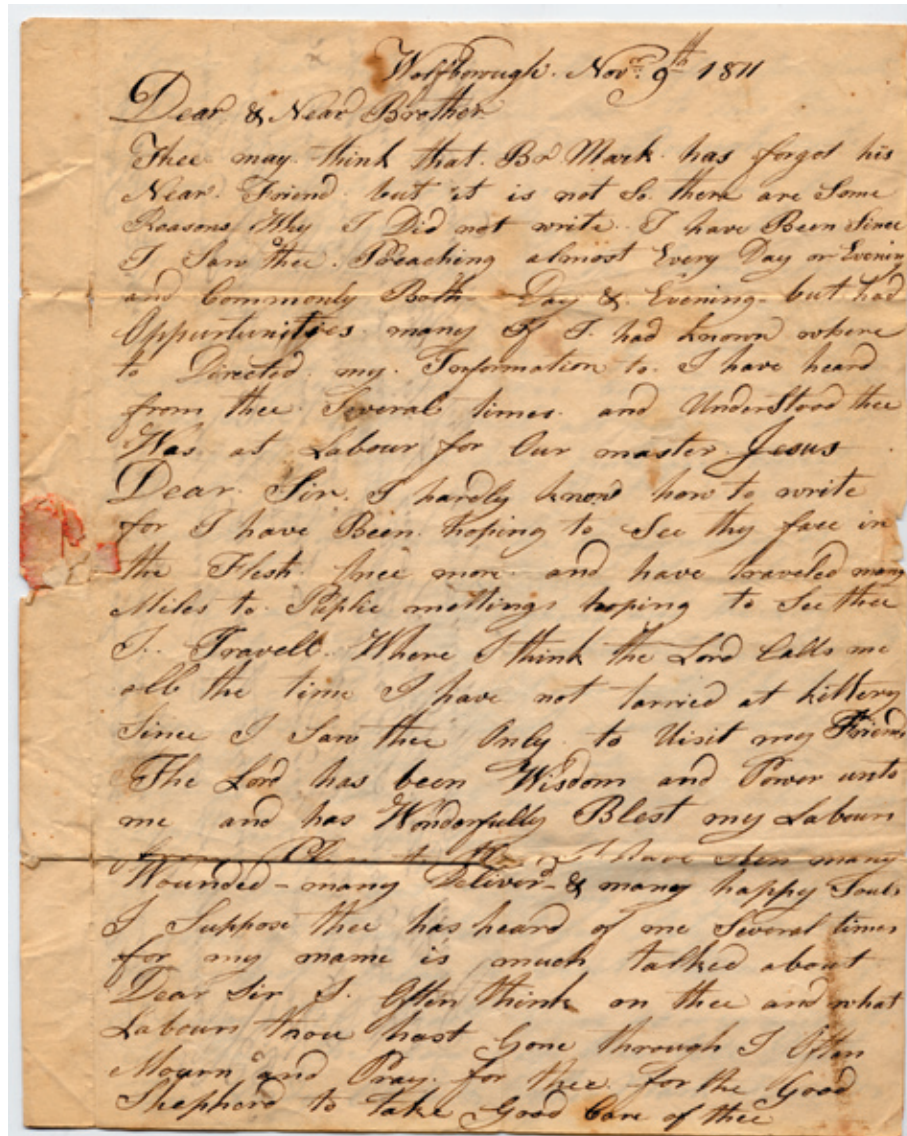 Wolfborough. Novr. 9th 1811
Dear & Near Brother
Thee may think that Br Mark has forgot his
Near Friend but it is not So there are Some
Reasons Why I Did not write I have Been Since
I Saw thee Preaching almost Every Day or Evening
and Commonly Both Day & Evening - but had
Oppurtunities many If I had known where
to Directed my Information to. I have heard
from thee Several times and Understood thee
Was at Labour for Our master Jesus
Dear Sir I hardly know how to write
for I have Been hoping to See thy face in
the Flesh Once more and have traveled many
Miles to mettings hoping to See thee
I Travell Where I think the Lord Calls me
all the time I have not tarried at Kittery
Since I Saw thee Only to Visit my Friends
The Lord has been Wisdom and Power unto
me and has Wonderfully Blest my Labours
I have seen many
Wounded - many Deliverd - & many happy Souls
I Suppose thee has heard of me Several times
for my name is much talked about
Dear Sir I Often think on thee and what
Labours thou hast Gone through I Often
Mourn and Pray for thee for the Good
Shepherd to take Good Care of thee